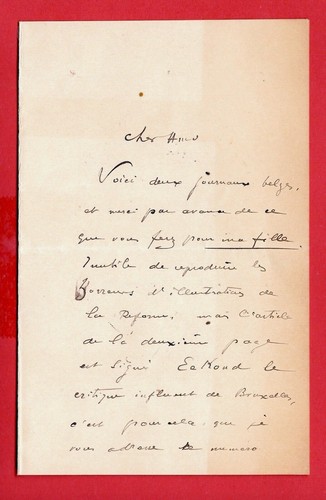 Cher Ami
Voici deux journaux belges,
et merci par avance de ce
que vous ferez pour ma fille.
Inutile de reproduire les
horreurs d'illustration de
la Reforme, mais l'article
de la deuxième page
est signé Eekoud le
critique influent de Bruxelles,
c'est pour cela que je
vous adresse le numero